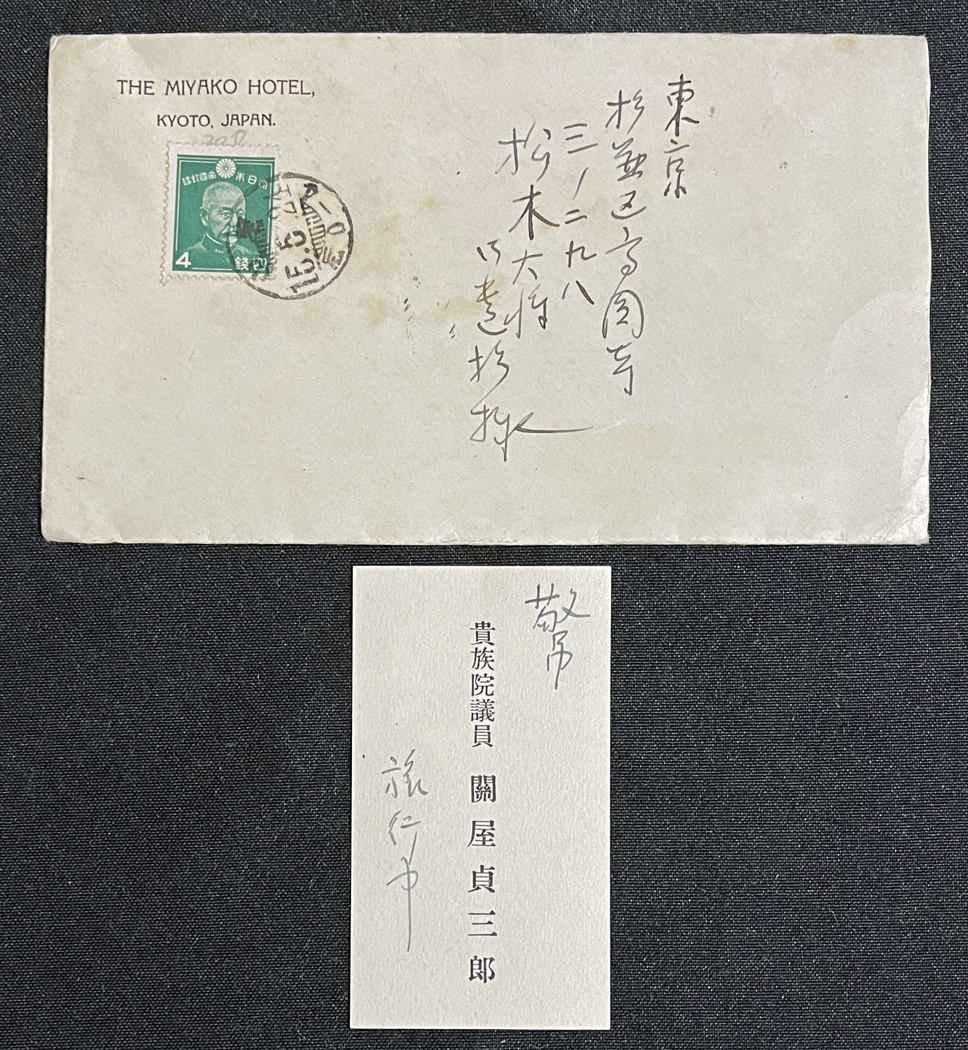 THE MIYAKO HOTEL,
KYOTO, JAPAN.
大日本帝國郵便
4
四銭
15.5
東京
杉並区高円寺
三ノ二九八
松木大将
御遺族様
敬弔
貴族院議員 關屋貞三郎
旅行中